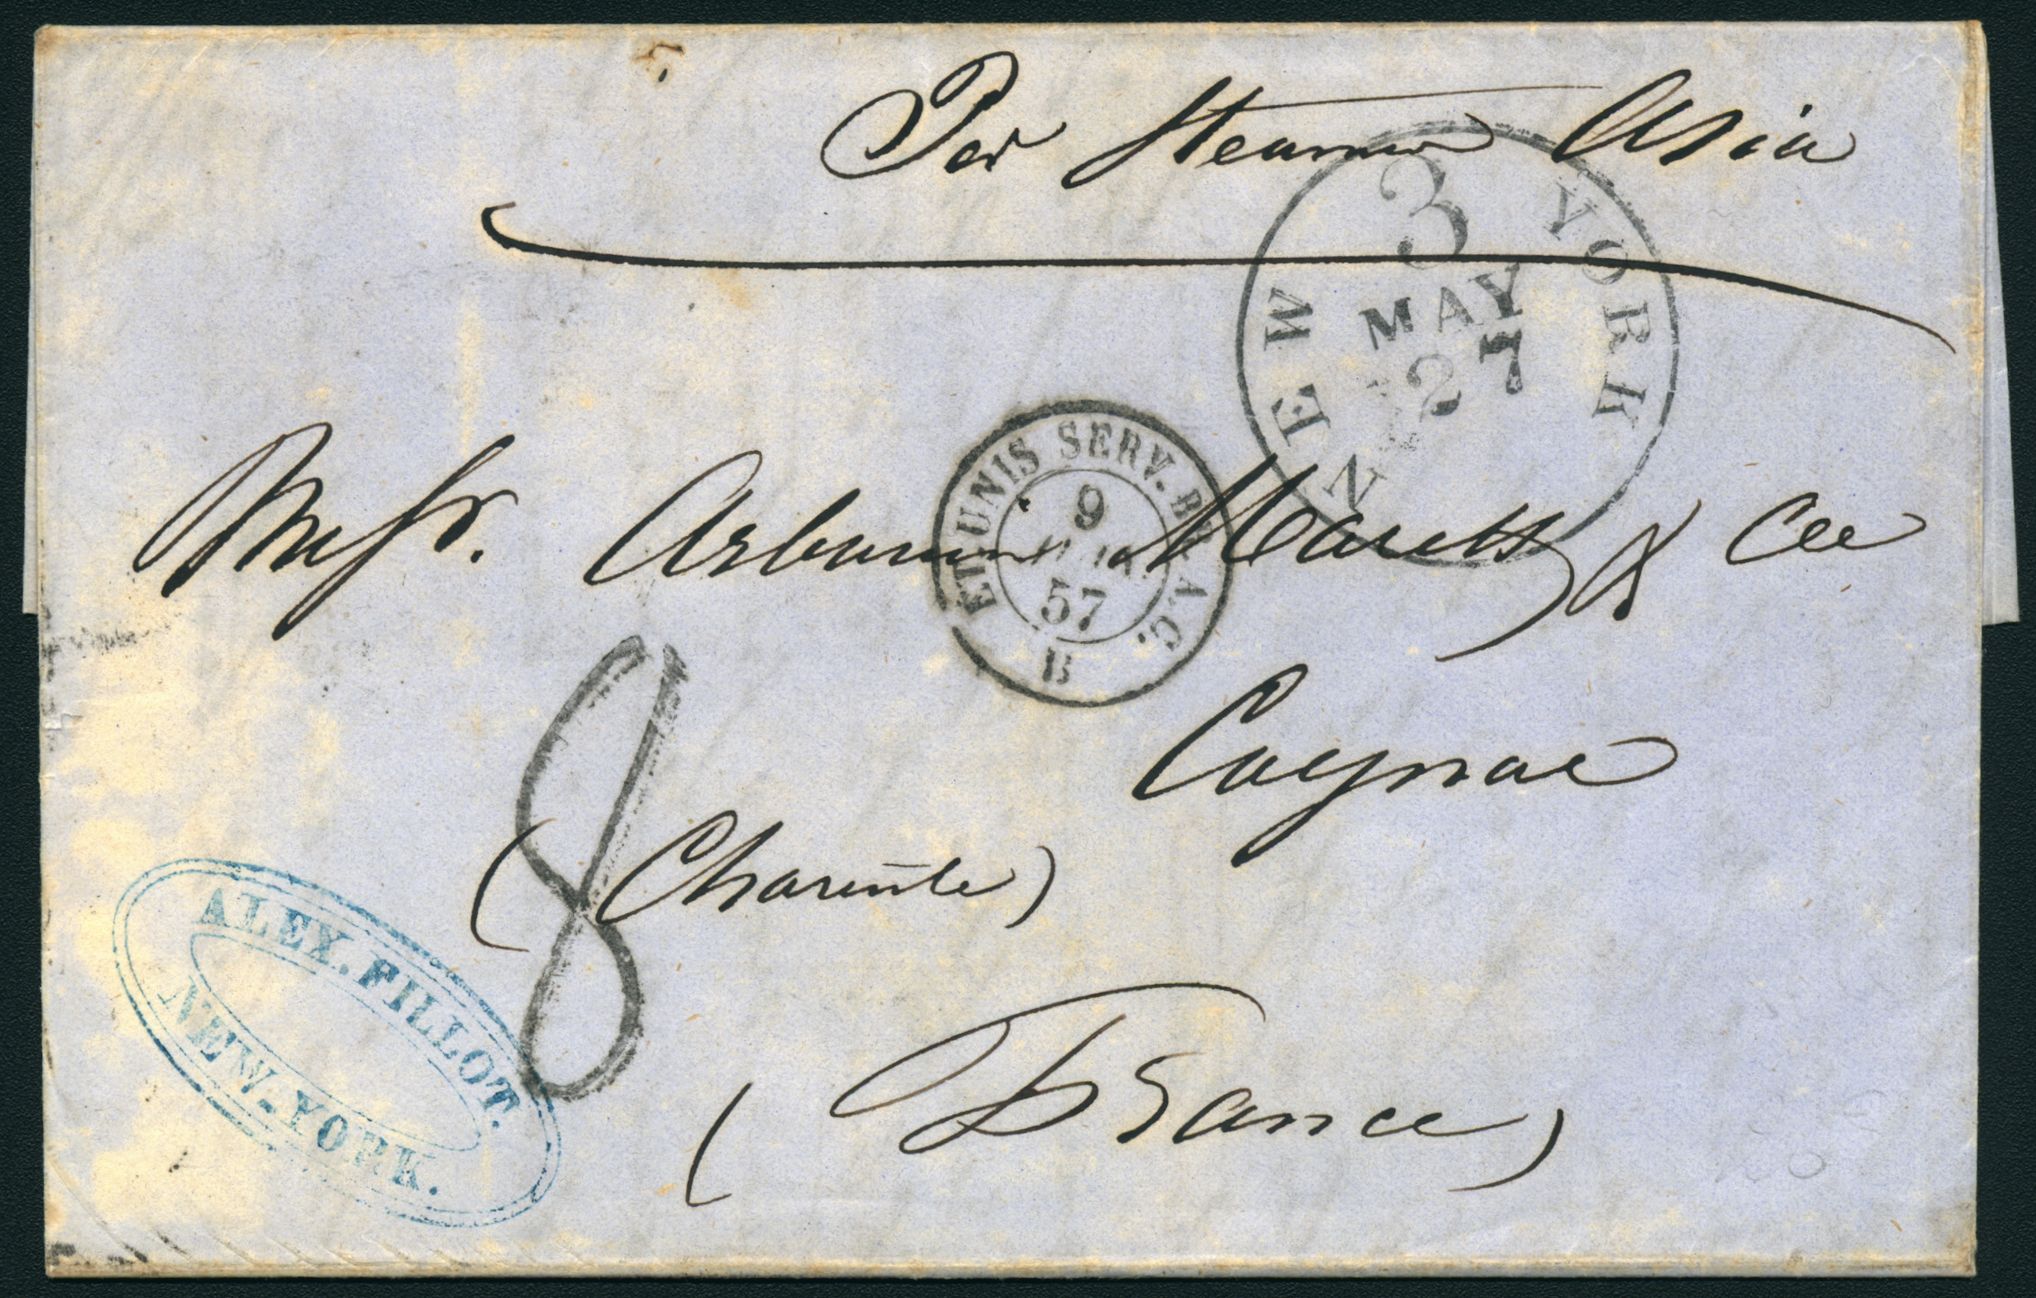 Per Steamer Asia
3
NEW YORK
MAY
27
ET. UNIS SERV. BR. A.C.
9
JUIN
57
B
Messr. Arbouin Marett & Cie
Cognac
8
(Charente)
(France)
ALEX. FILLOT.
NEW-YORK.